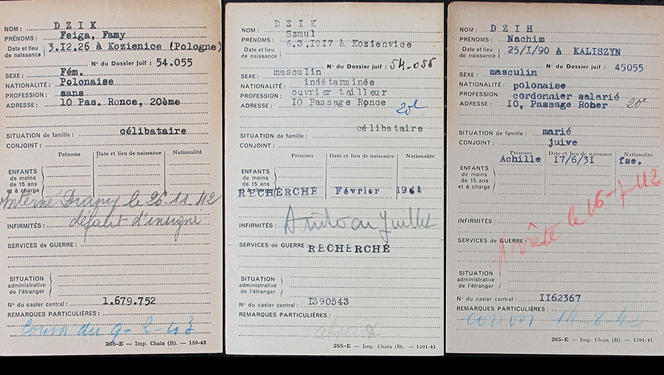 NOM : DZIK
PRÉNOMS : Feiga, Famy
Date et lieu de naissance : 3.12.26 à Kozienice (Pologne)
N° du Dossier juif : 54.055
SEXE : Fém.
NATIONALITÉ : Polonaise
PROFESSION : sans
ADRESSE : 10 Pas. Ronce, 20ème
SITUATION de famille : célibataire
CONJOINT :
Prénoms Date et lieu de naissance Nationalité
ENFANTS de moins de 15 ans et à charge
Interné Drancy le 26 11 42
défaut d'insigne
INFIRMITÉS :
SERVICES de GUERRE :
SITUATION administrative de l'étranger
N° du casier central : 1.679.752
REMARQUES PARTICULIÈRES :
du 9-2-43
265-E — Imp. Chaix (B). — 159-42
NOM : DZIK
PRÉNOMS : Szmul
Date et lieu de naissance : 6.3.1917 à Kozienvice
N° du Dossier juif : 54-055
SEXE : masculin
NATIONALITÉ : indéterminée
PROFESSION : ouvrier tailleur
ADRESSE : 10 Passage Ronce
20e
SITUATION de famille : célibataire
CONJOINT :
Prénoms Date et lieu de naissance Nationalité
ENFANTS de moins de 15 ans et à charge
RECHERCHE Février
INFIRMITÉS :
Juillet
SERVICES de GUERRE :
RECHERCHÉ
SITUATION administrative de l'étranger
N° du casier central : 1390543
REMARQUES PARTICULIÈRES :
265-E — Imp. Chaix (B). — 1591-41
NOM : DZIH
PRÉNOMS : Nachim
Date et lieu de naissance : 25/1/90 à KALISZYN
N° du Dossier juif : 45055
SEXE : masculin
NATIONALITÉ : polonaise
PROFESSION : cordonnier salarié
ADRESSE : 10, Passage Roher 20e
SITUATION de famille : marié
CONJOINT : juive
Prénoms Date et lieu de naissance Nationalité
ENFANTS de moins de 15 ans et à charge
Achille 17/6/31 fse.
Arrêté le 16-7-42
INFIRMITÉS :
SERVICES de GUERRE :
SITUATION administrative de l'étranger
N° du casier central : 1162367
REMARQUES PARTICULIÈRES :
265-E — Imp. Chaix (B). — 1591-41